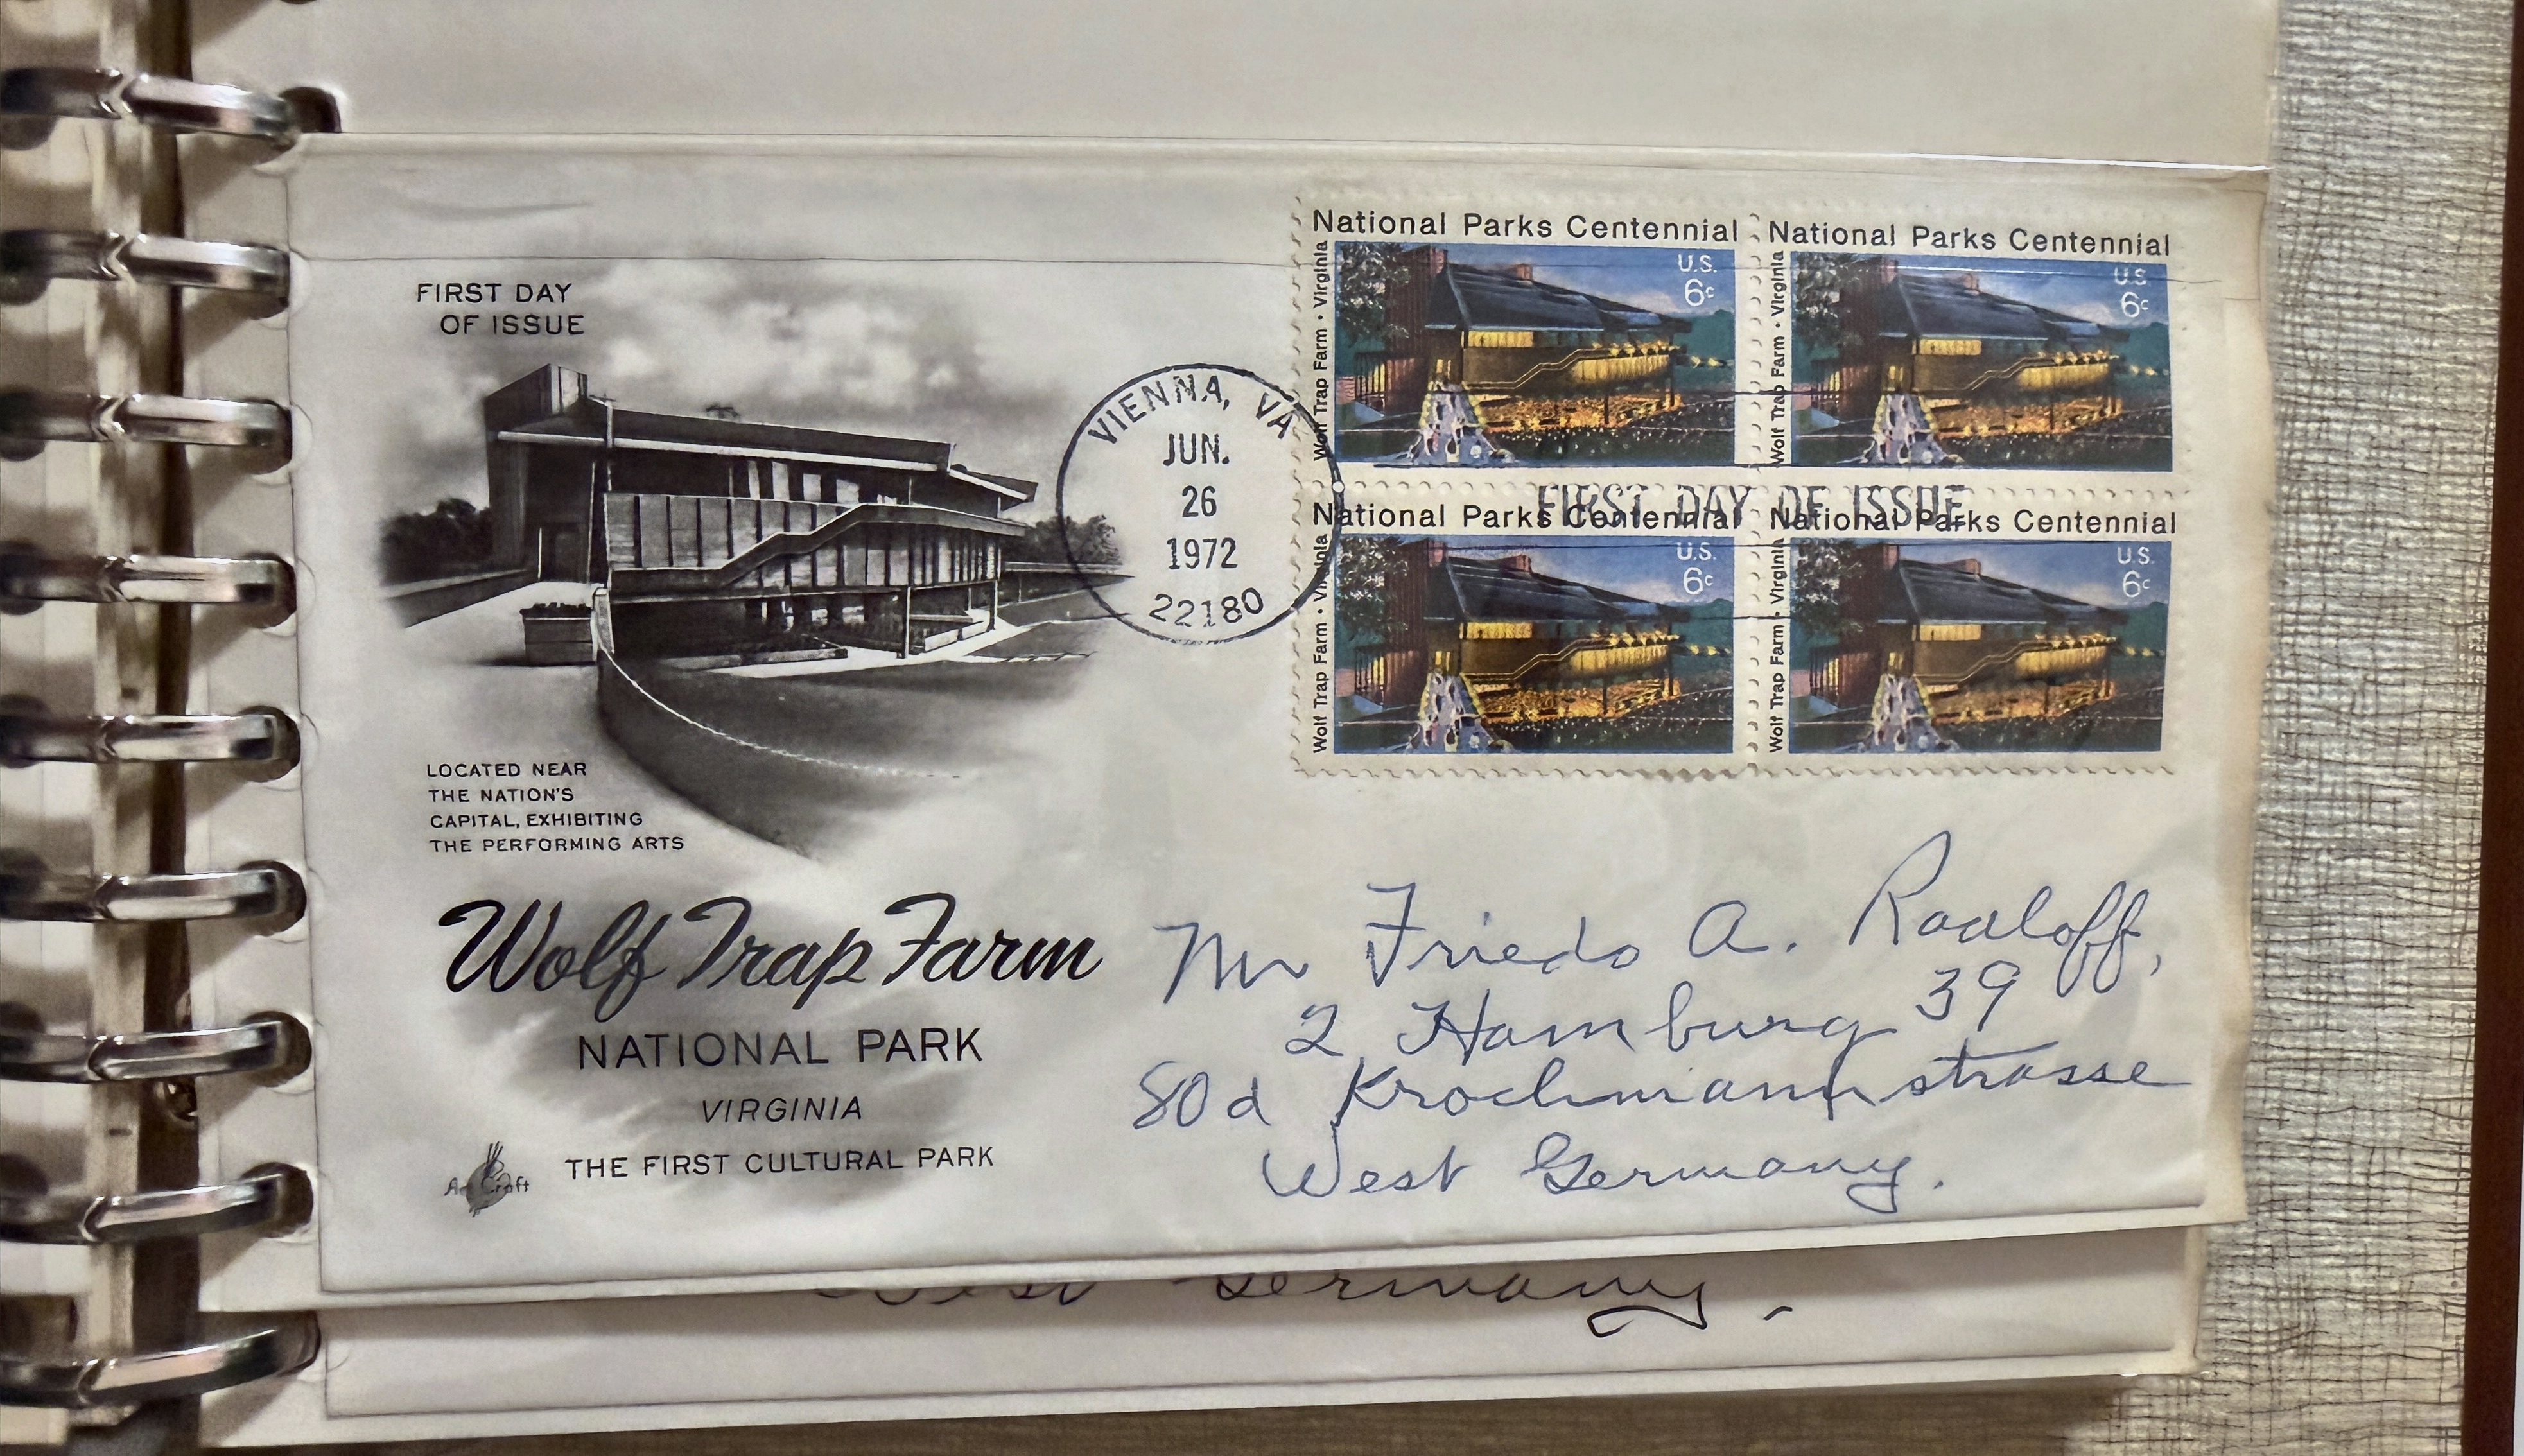 FIRST DAY
OF ISSUE
LOCATED NEAR
THE NATION'S
CAPITAL, EXHIBITING
THE PERFORMING ARTS
Wolf Trap Farm
NATIONAL PARK
VIRGINIA
THE FIRST CULTURAL PARK
ArtCraft
VIENNA, VA
JUN.
26
1972
22180
National Parks Centennial
Wolf Trap Farm • Virginia
U.S.
6c
National Parks Centennial
Wolf Trap Farm • Virginia
U.S.
6c
FIRST DAY OF ISSUE
National Parks Centennial
Wolf Trap Farm • Virginia
U.S.
6c
National Parks Centennial
Wolf Trap Farm • Virginia
U.S.
6c
Mr Friedo A. Radloff,
2 Hamburg 39
80d Krochmannstrasse
West Germany.
West Germany.